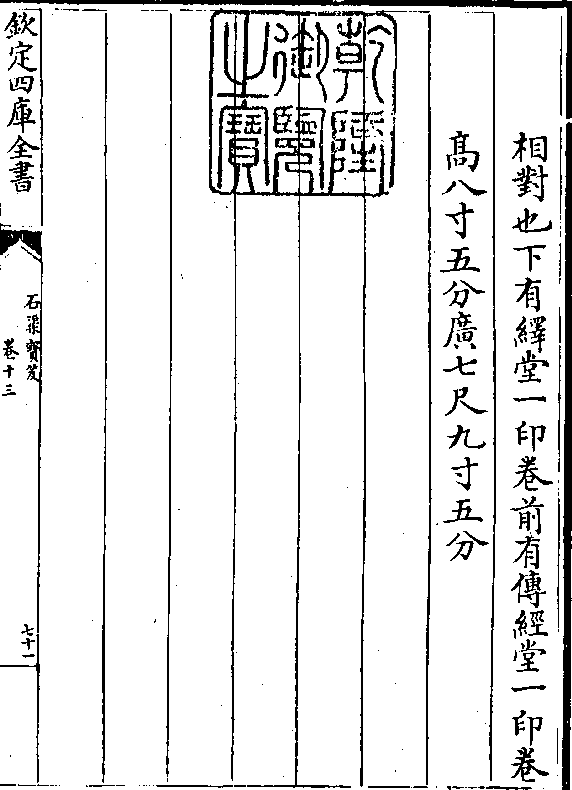 相對也下有繹堂一印卷前有傳經堂一印卷
高八寸五分廣七尺九寸五分
乾隆
御覽
之寶
欽定四庫全書
石渠寶笈
卷十三
七十一